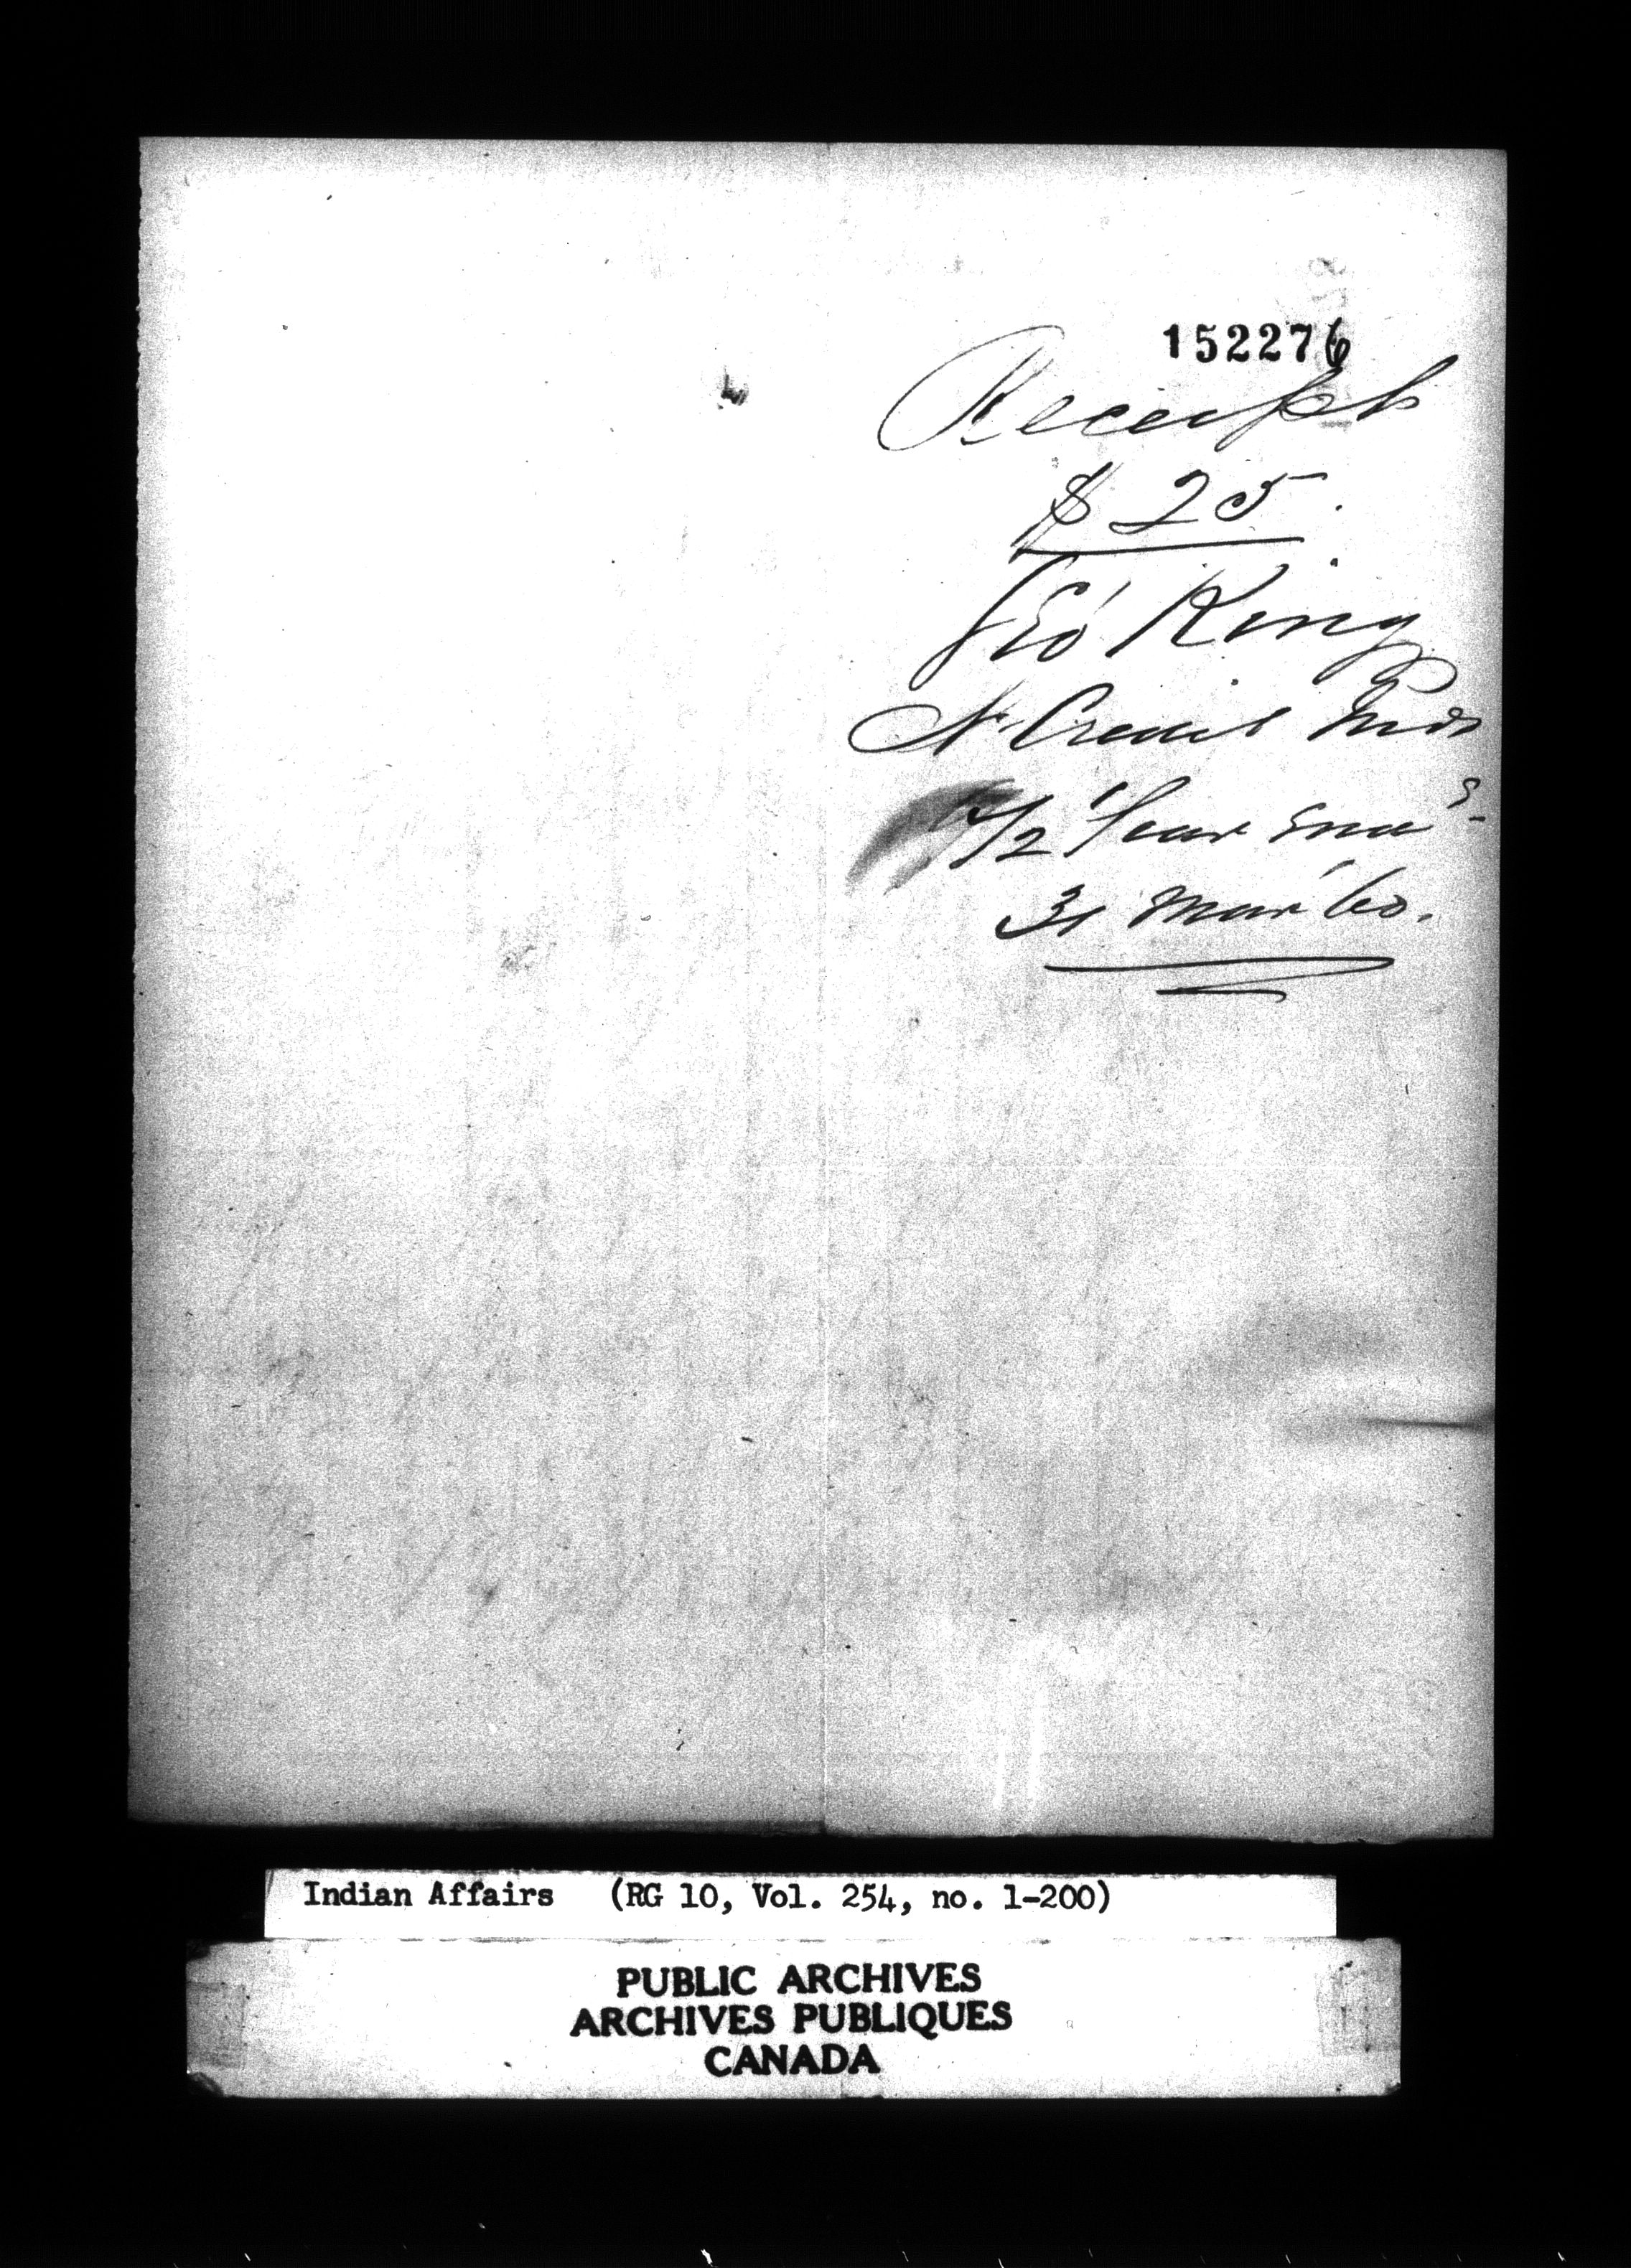 152276
Receipt
$25.
Geo King
N. Credit Mis
1/2 Year End<sup>g</sup>
31 Mar '60.
Indian Affairs (RG 10, Vol. 254, no. 1-200)
PUBLIC ARCHIVES
ARCHIVES PUBLIQUES
CANADA